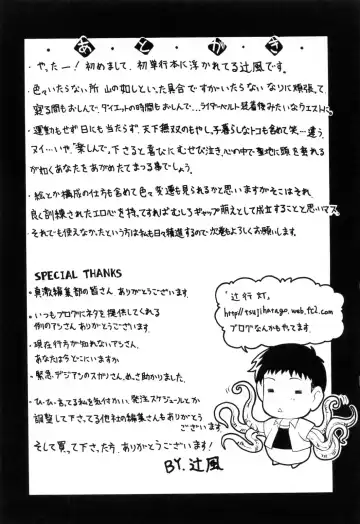 あとがき
・やったー！初めまして、初単行本に浮かれてる辻風です。
・色々いたらない所 山の如しといった具合ですがいたらないなりに頑張って、
寝る間もおしんで、ダイエットの時間もおしんで…ライダーベルト装着後みたいなウエストに。
・運動もせず日にも当たらず、天下無双のもやしっ子暮らしなトコも含めて笑…違う、
ヌイ…いや、"楽しんで"下さると喜びにむせび泣き、心の中で聖地に頭を垂れるが
が如くあなたをあがめたてまつる事でしょう。
・絵とか構成の仕方も含めて色々変遷も見られるかと思いますがそこはそれ、
良く訓練されたエロ心を持ってすればむしろギャップ萌えとして成立することと思いマス。
・それでも使えなかったという方は私も日々精進するので次巻もよろしくお願いします。
SPECIAL THANKS
・真激編集部の皆さん ありがとうございます
・いつもブログにネタを提供してくれる
例のアシさん ありがとうございます。
・現在行方が知れないアシさん、
あなたは今どこにいますか
・緊急デジアシのスガリさん、めっさ助かりました。
・ひぃひぃ言ってる私を気付かい、発注スケジュールとか
調整して下さってる他社の編集さんもありがとう
ございます
そして買って下さった方、ありがとうございます！
BY. 辻風
"辻行灯"
http://tsujiharago.web.fc2.com
ブログなんかもやてます。